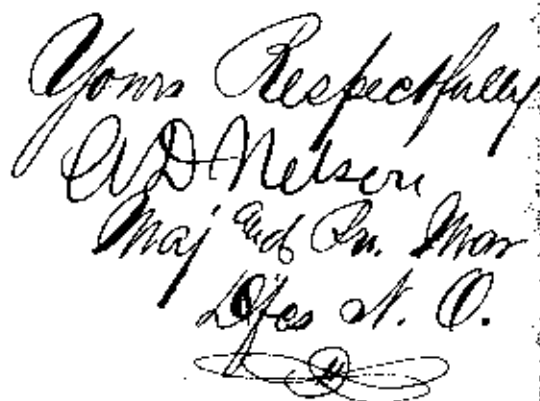 Yours Respectfully
A D Nelson
Maj and Pro. Mar
N. O.